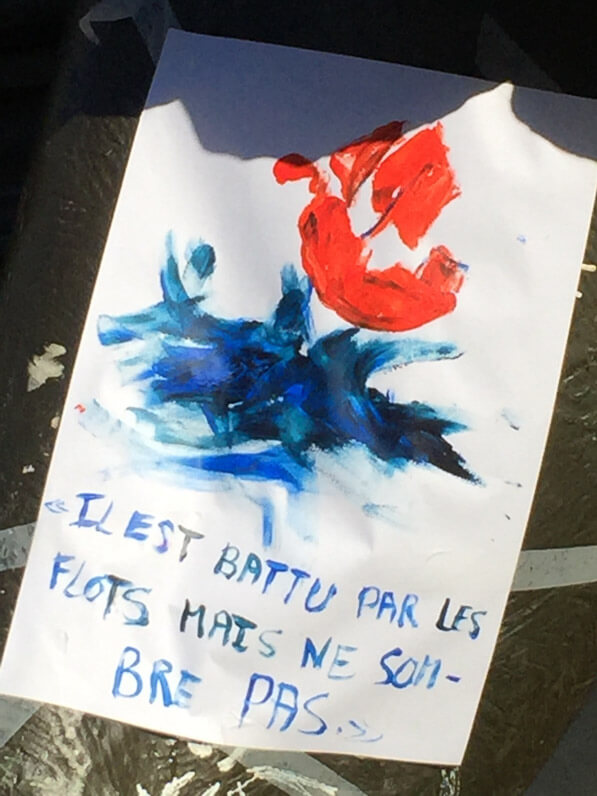 «IL EST BATTU PAR LES
FLOTS MAIS NE SOM-
BRE PAS.»